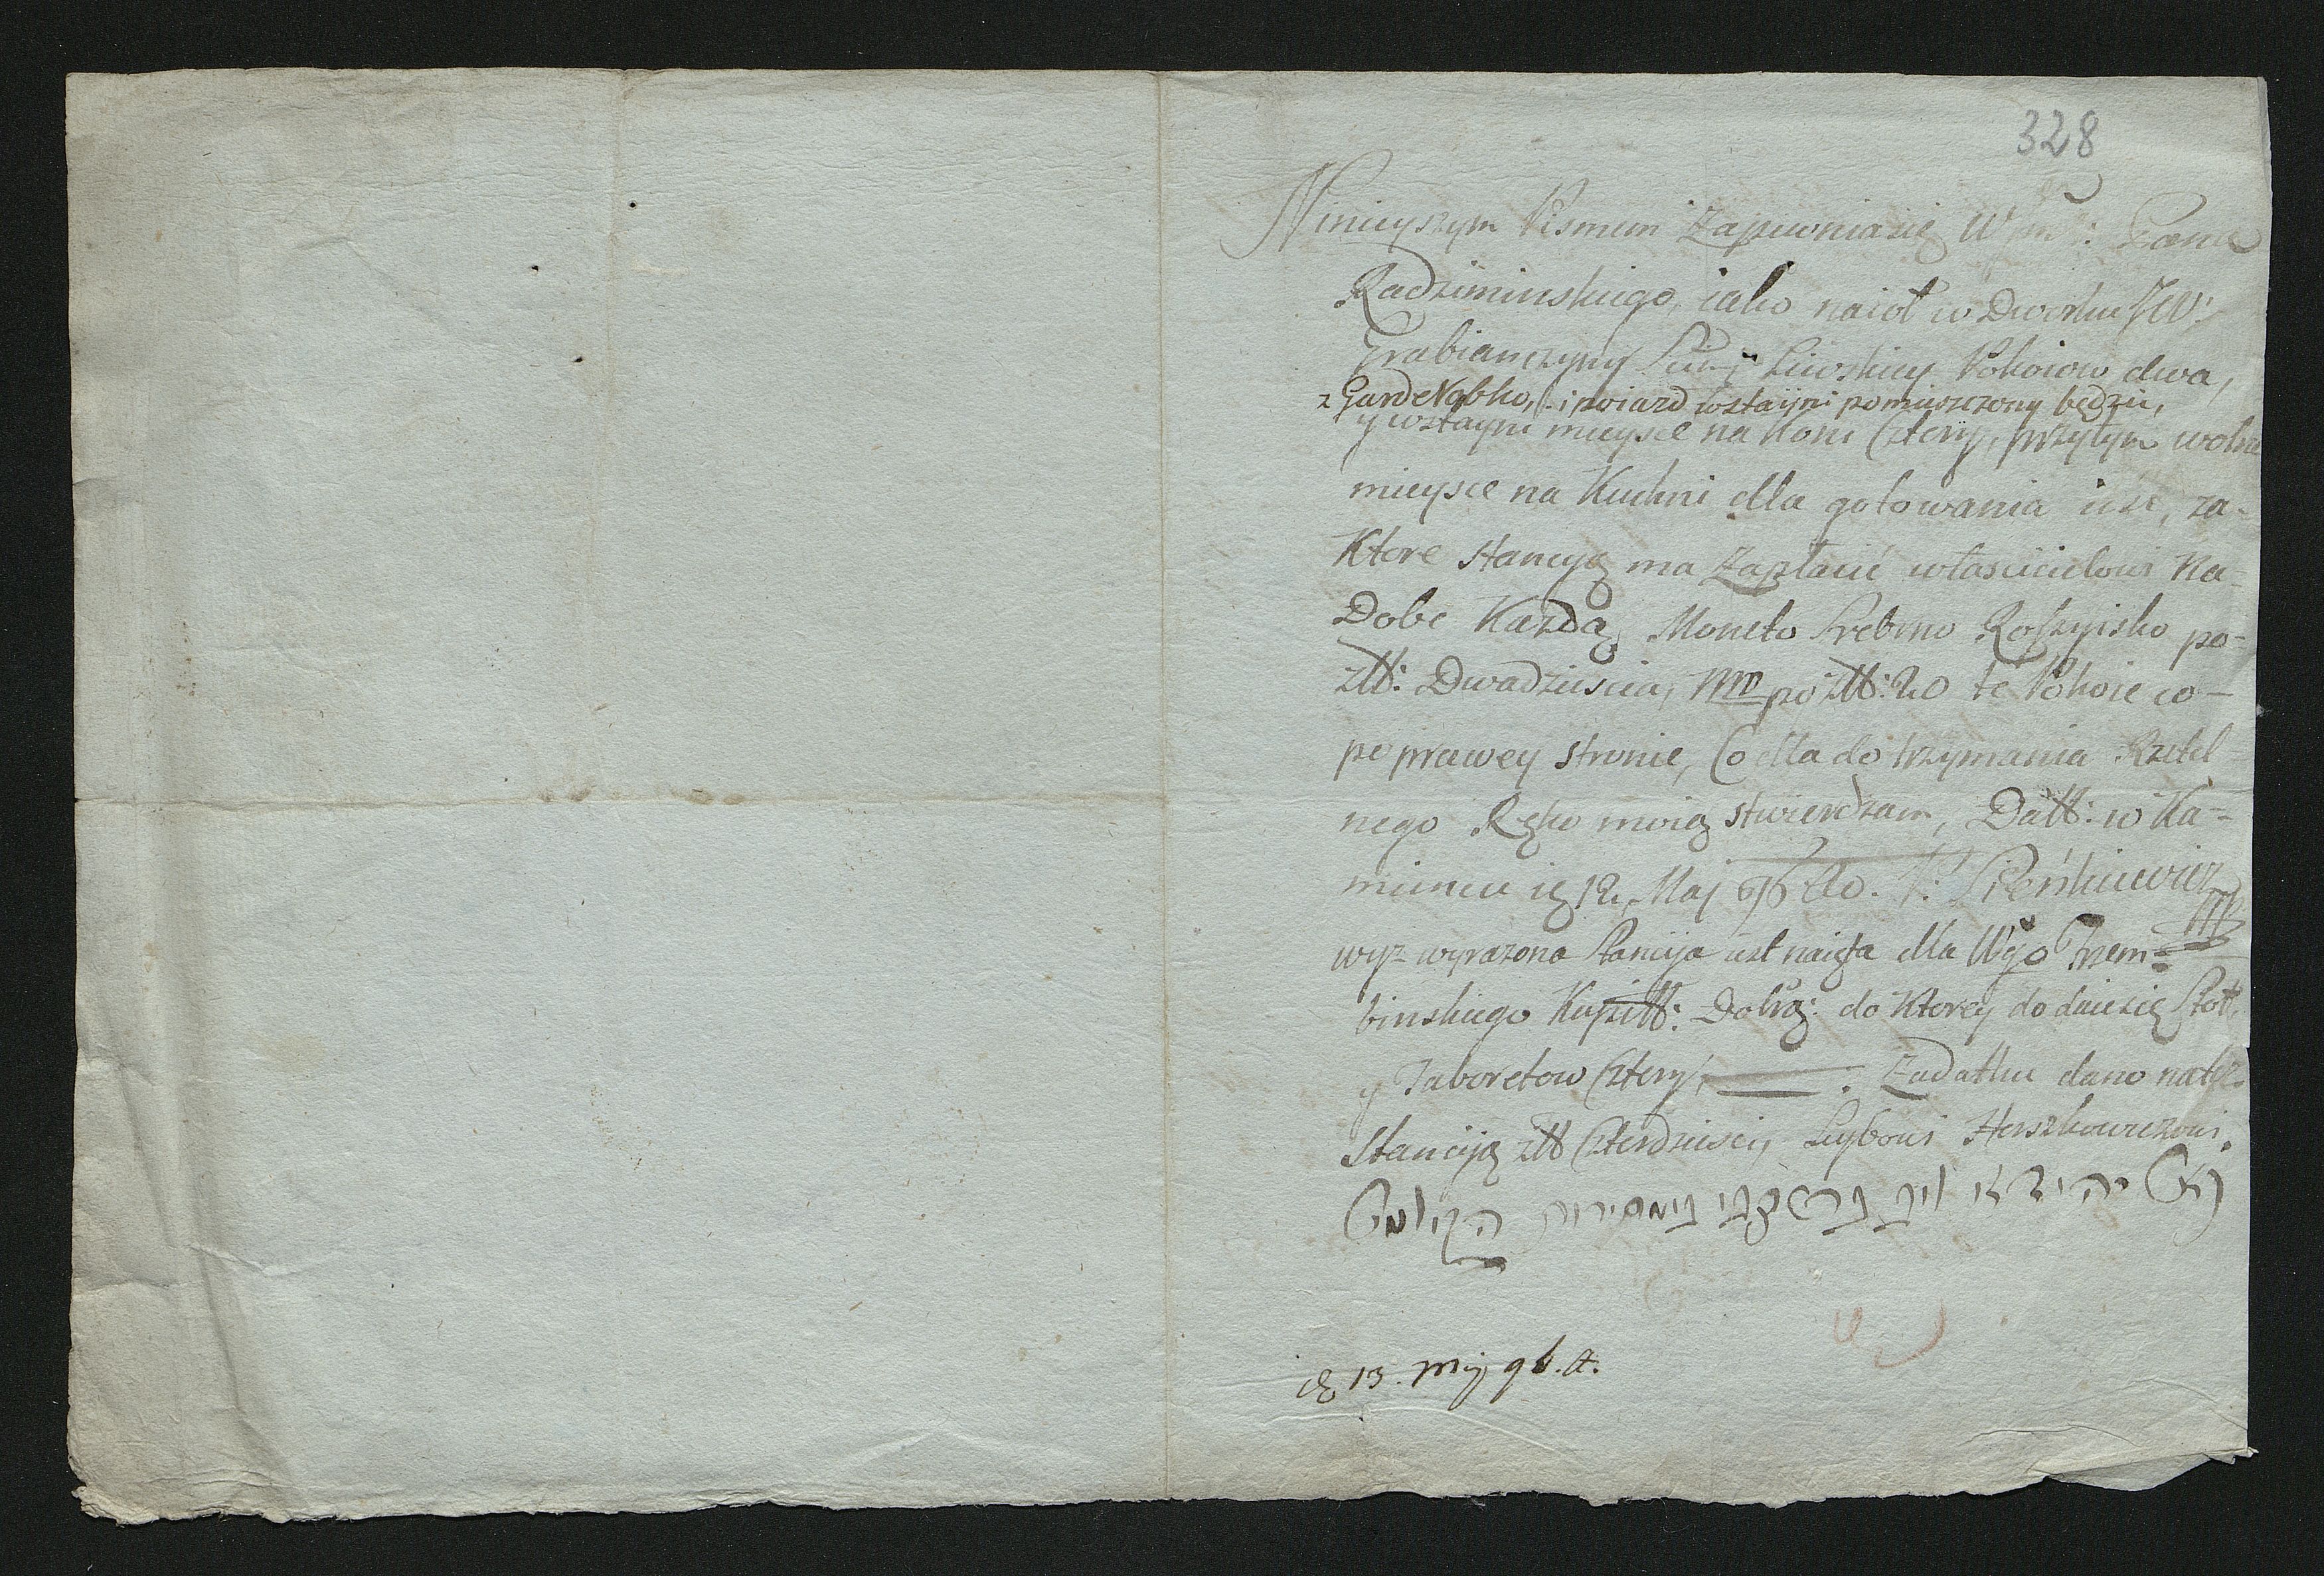 328
Ninieyszym Pismem Zapewnia się W Pana
Radziminskiego, iako naioł w Dworku JW:
Grabianczyny Liwskiey Pokoiow dwa,
z Garderobko, i poiazd wstayni pomieszczony będzie,
y wstayni mieysce na Koni Cztery, przytym wolne
mieysce na Kuchni dla gotowania iesc, za-
Ktore Stancyą ma Zapłacić własciecielowi Ka-
Dobe Kazdą Moneto Srebrno Roszyisko po-
złł: Dwadziescia, po złł: 20 te Pokoie co-
po prawey stronie, Co dla do trzymania Rzetel
nego Ręko moią stwierdzam, Datt: w Ka-
miencu ię 12 Maj 96 Ao. Pieńkiewicz
wyz wyrazona Stancyja iest naięta dla Wgo Trem-
binskiego Kapitt: Dobrą: do Ktorey do daie się Stoł,
y Taboretow Cztery, Zadatku dano na tęz
Stancyją złł Czterdziesci, Leybowi Herszkowiczowi.
ię 13. Mij 96. A.